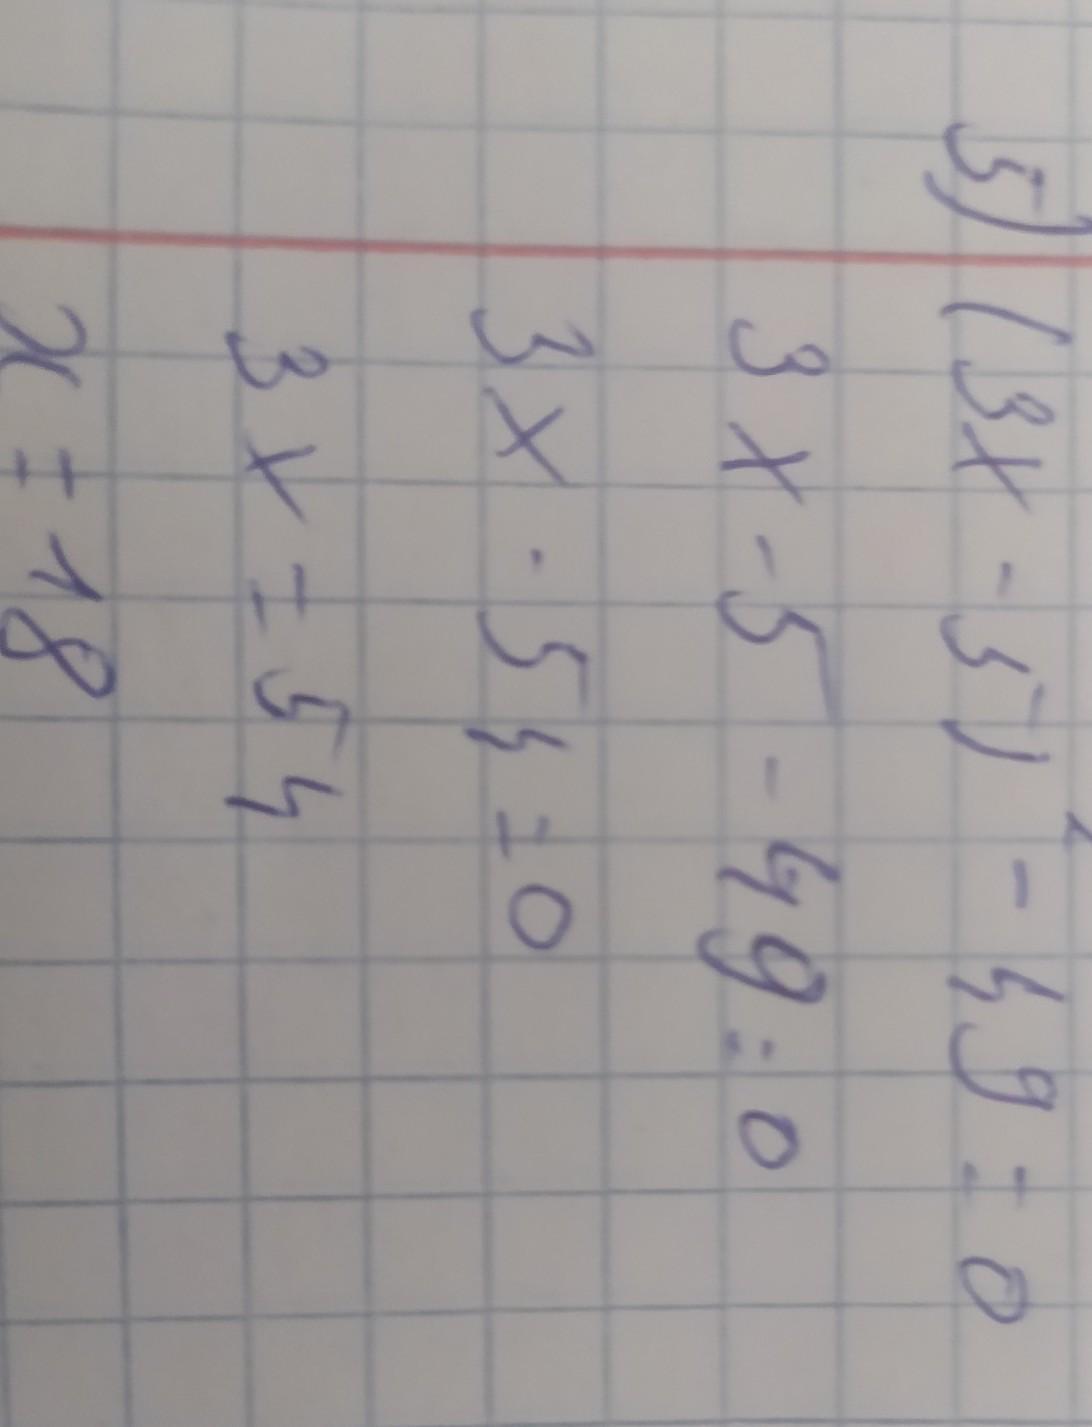 5) (3x - 5)² - 49 = 0
3x - 5 - 49 = 0
3x - 54 = 0
3x = 54
x = 18